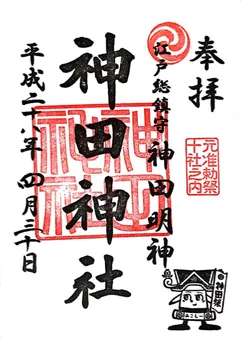 奉拝
元准勅祭
十社之内
江戸総鎮守 神田明神
神田神社
平成二十八年 四月三十日
神田祭
みこしー